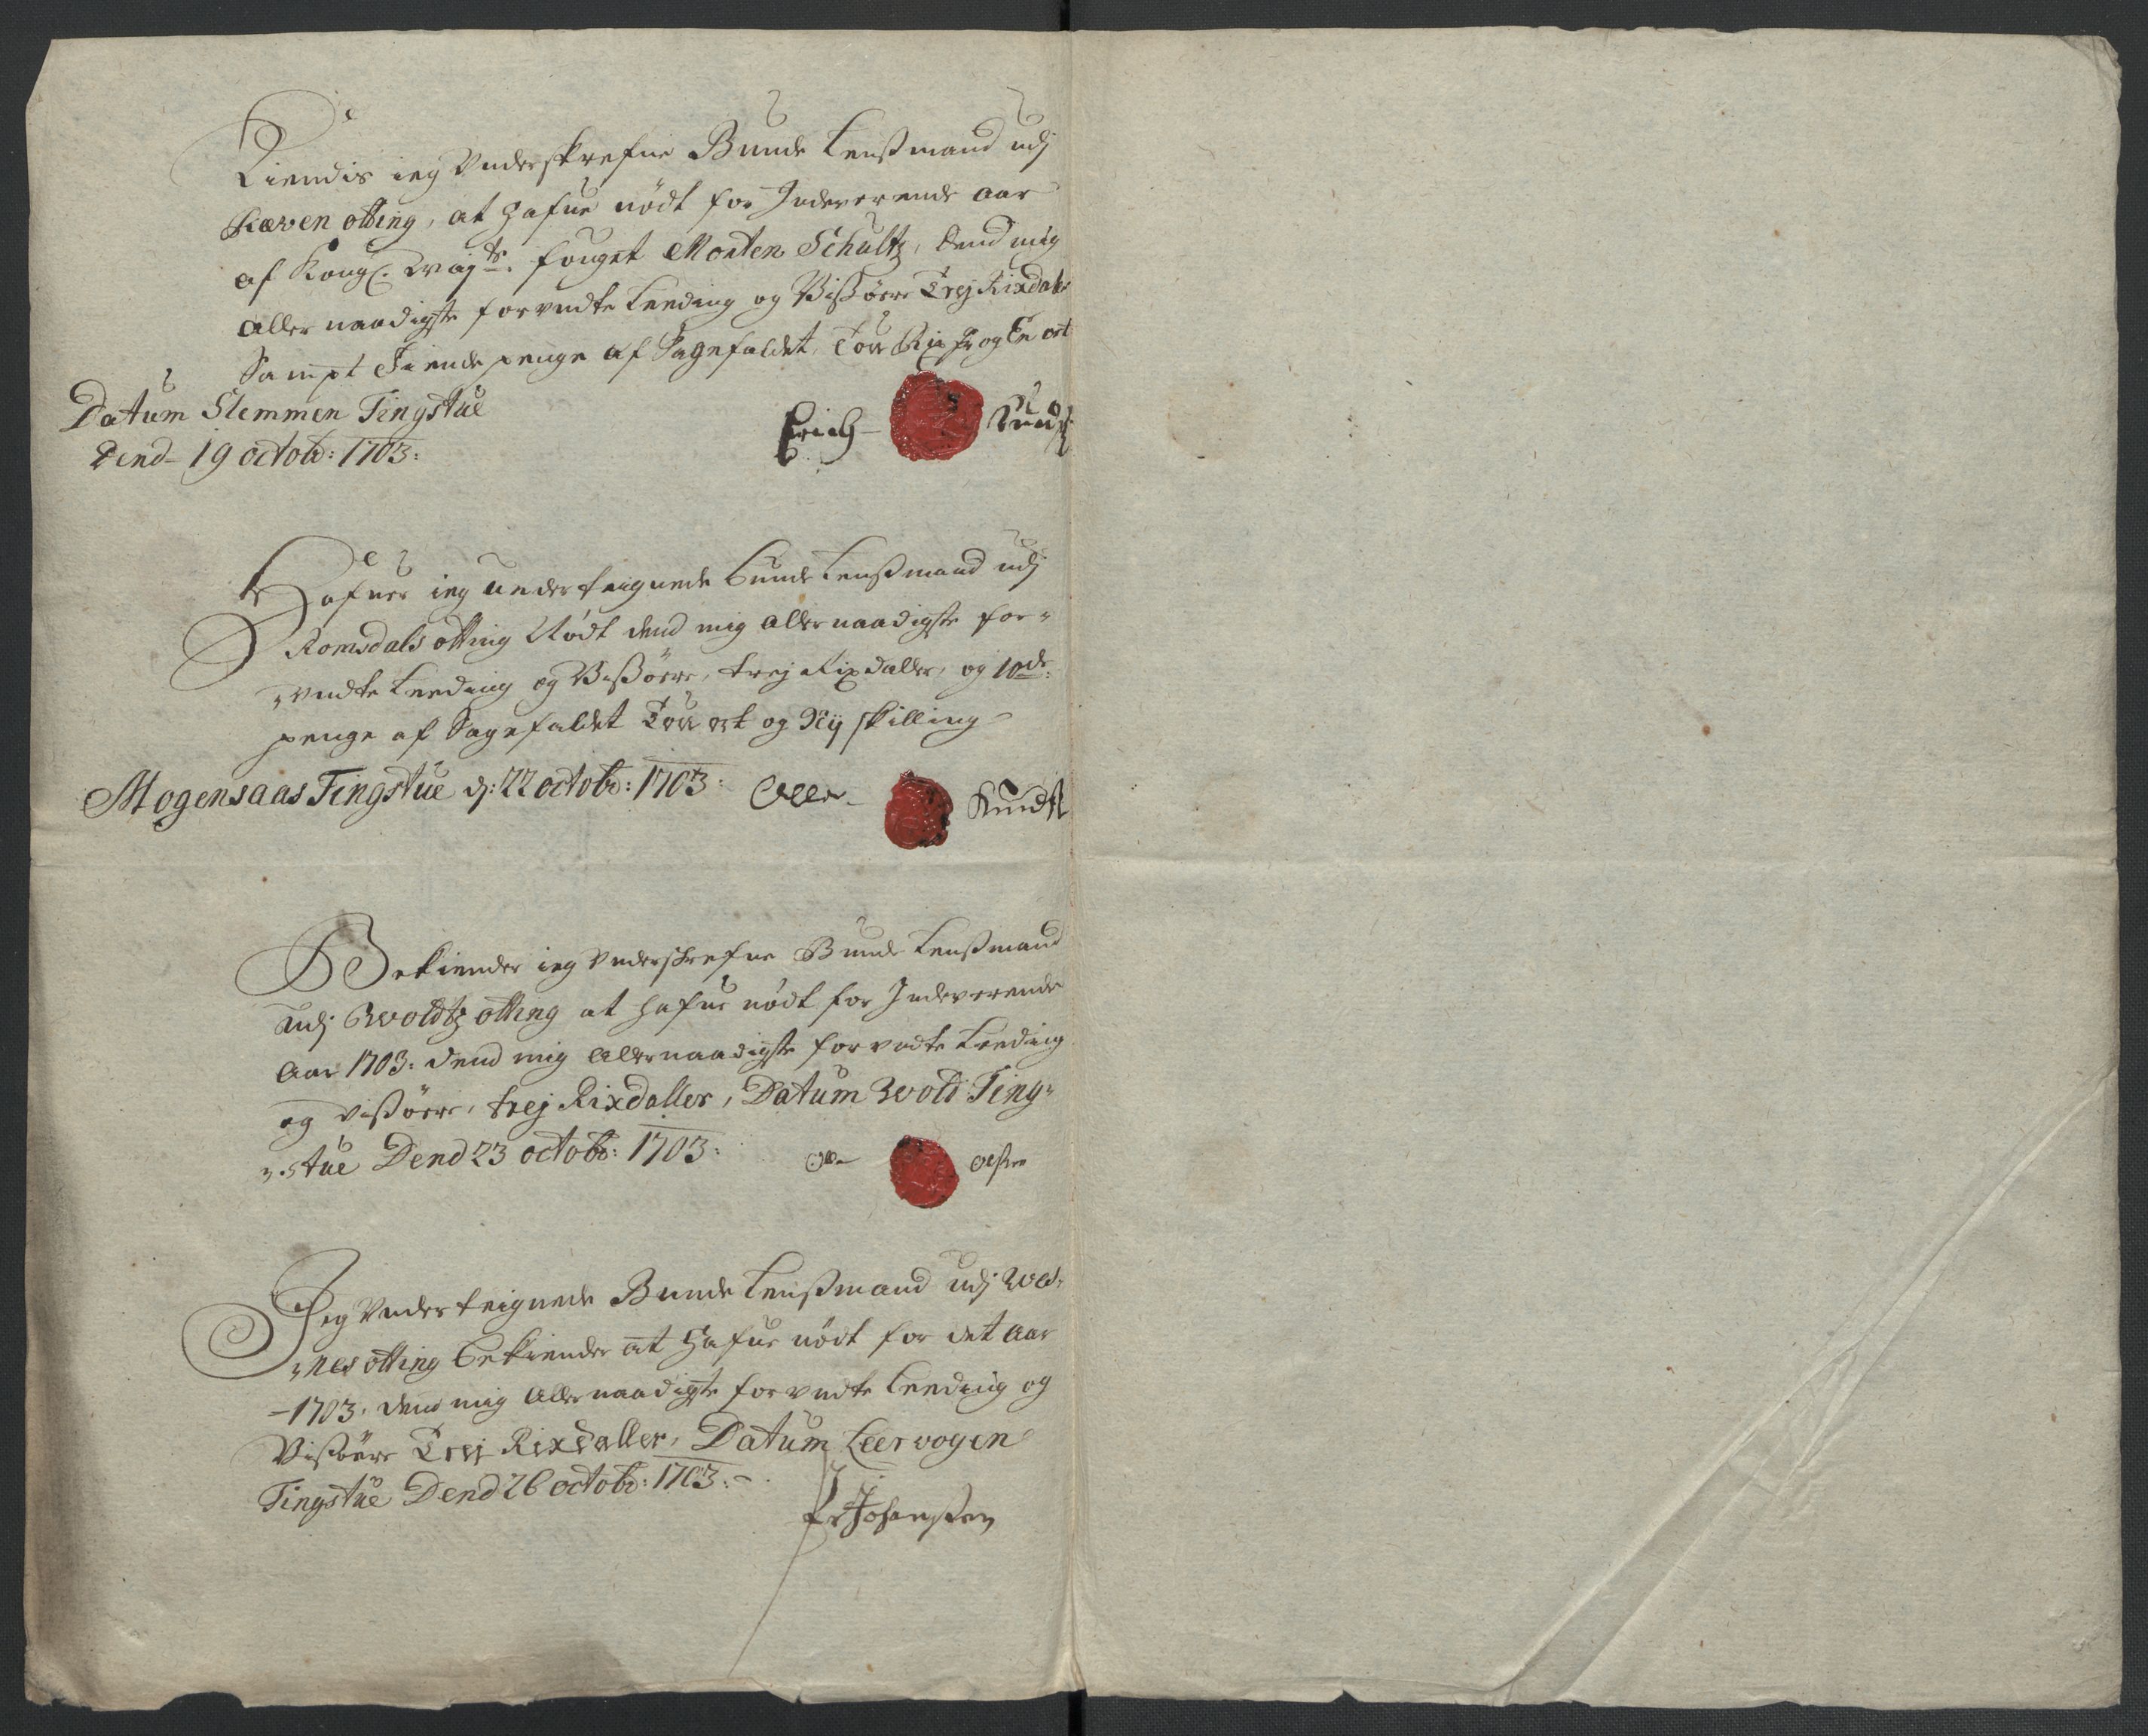 Kiendis ieg Underskrefne Bunde Lensmand udj
Ræven otting, at hafue nödt for Indeverende Aar
af Kongl. Mayts. fouget Morten Schultz, dend mig
Aller naadigste forundte Leeding og Visöere Trej Rixdaler
Sampt Tiende penge af Sagefaldet, Tou Rix dr og En ort
Datum Slemmen Tingstue
Dend 19 octobr: 1703:
Erich
Hafuer ieg underteignede Bunde Lensmand udj
Romsdals otting Nödt dend mig allernaadigste for-
undte Leeding og Visöere, trej Rixdaller, og 10de:
penge af Sagefaldet Tou ort og Xij skilling
Mogensaas Tingstue d: 22 octobr: 1703: Olle Knuds
Bekiender ieg Underskrefne Bunde Lensmand
udj Woldtz otting at hafue nödt for Indeverende
Aar 1703: dend mig Allernaadigste forundte Leeding
og visöere, trej Rixdaller, Datum Wold Ting-
stue Dend 23 octobr: 1703: Ole Olsen
Jeg Underteignede Bunde Lensmand udj Wes-
nes otting bekiender at hafue nödt for det Aar
1703. dend mig Allernaadigste forundte Leeding og
Visöere Trej Rixdaller, Datum Leervogen
Tingstue Dend 26 octobr: 1703:
Johansen